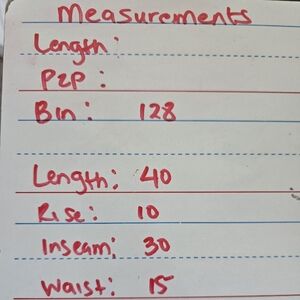 Measurements
Length:
P2P:
Bin: 128
Length: 40
Rise: 10
Inseam: 30
Waist: 15